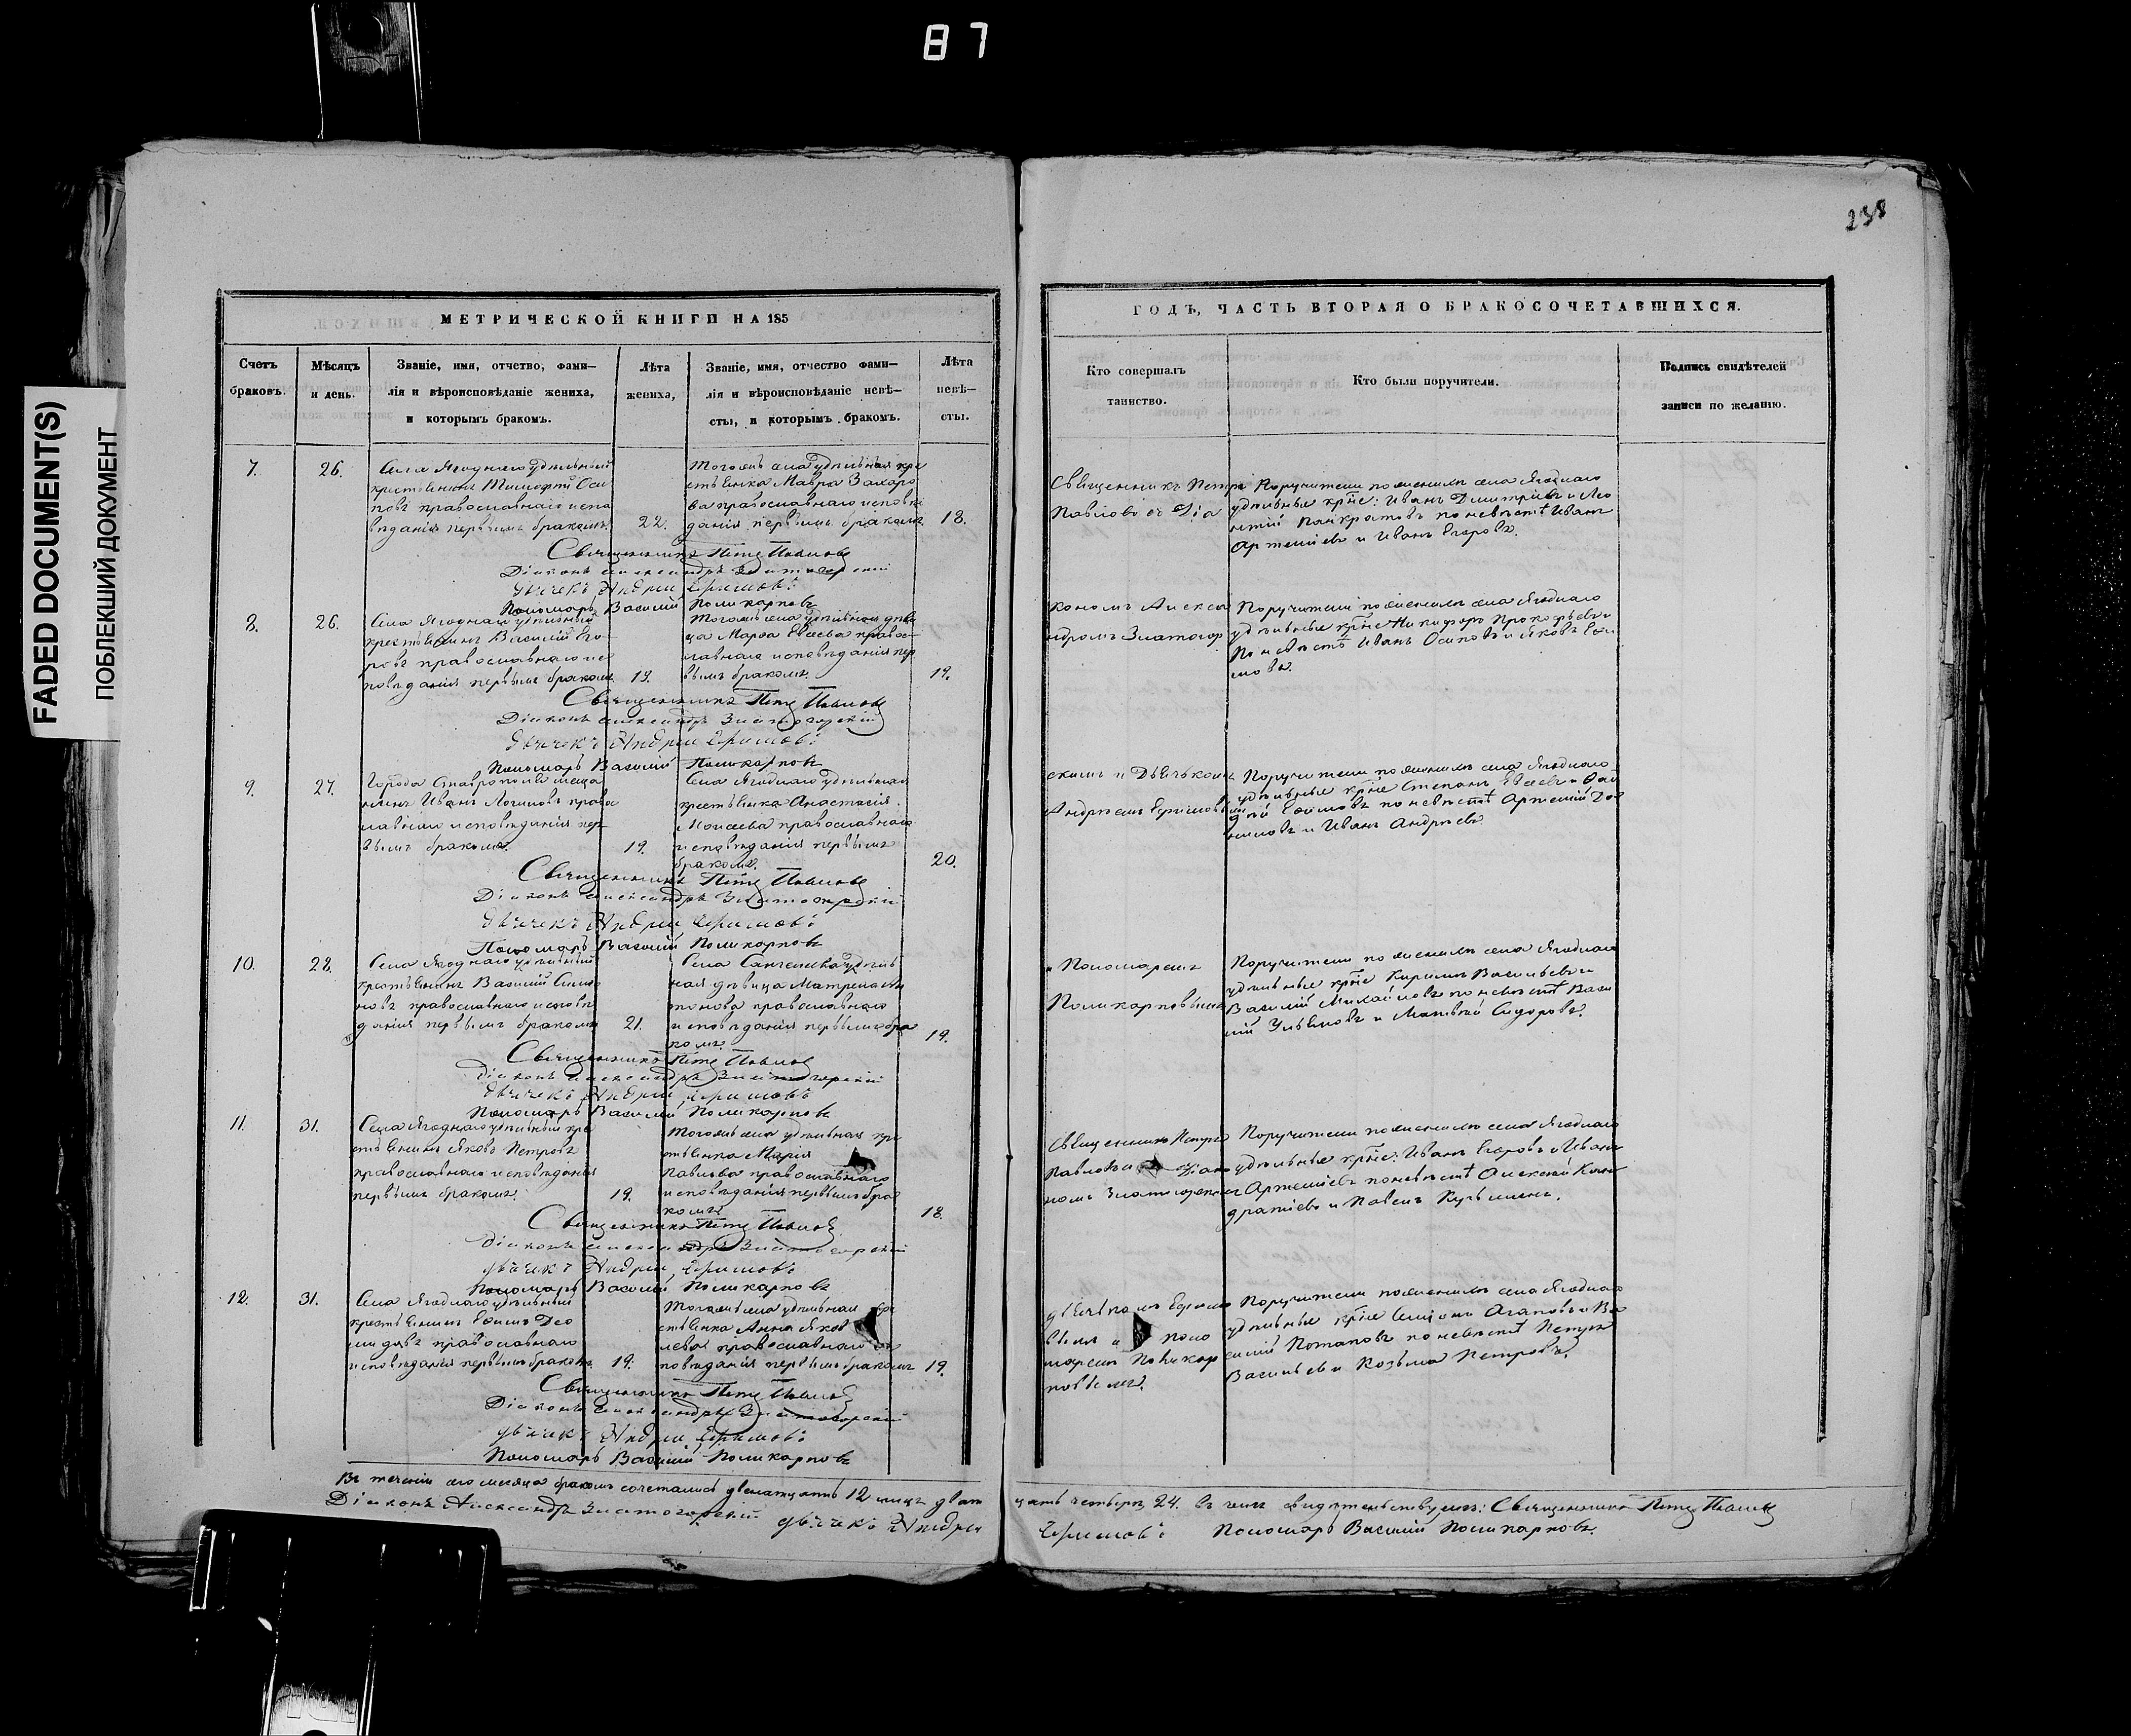 87
238
FADED DOCUMENT(S)
ПОБЛЕКШИЙ ДОКУМЕНТ
МЕТРИЧЕСКОЙ КНИГИ НА 185
Счетъ браковъ.
Мѣсяцъ и день.
Званіе, имя, отчество, фами–
лія и вѣроисповѣданіе жениха,
и которымъ бракомъ.
Лѣта жениха,
Званіе, имя, отчество фами–
лія и вѣроисповѣданіе невѣ–
сты, и которымъ бракомъ.
Лѣта невѣ–
сты.
7. 26.
Села Ягоднаго удѣльный
крестьянинъ Тимофей Оси
повъ православнаго испо
вѣданія первымъ бракомъ. 22.
Тогожъ села удѣльная кре
стьянка Мавра Захаро
ва православнаго исповѣ
данія первымъ бракомъ 18.
Священникъ Петръ Павловъ
Діаконъ Александръ Златогорскій
Дьячекъ Андрей Ефимовъ
Пономарь Василій Поликарповъ
8. 26.
Села Ягоднаго удѣльный
крестьянинъ Василій Его
ровъ православнаго ис
повѣданія первымъ бракомъ 19.
Тогожъ села удѣльная дѣви
ца Марѳа Евсева правос
лавнаго исповѣданія пер
вымъ бракомъ. 19.
Священникъ Петръ Павловъ
Діаконъ Александръ Златогорскій
Дьячекъ Андрей Ефимовъ
Пономарь Василій Поликарповъ
9. 27.
Города Ставрополя меща
нинъ Иванъ Логиновъ право
славнаго исповѣданія пер
вымъ бракомъ. 19.
Села Ягоднаго удѣльная
крестьянка Анастасія
Моисеева православнаго
исповѣданія первымъ
бракомъ. 20.
Священникъ Петръ Павловъ
Діаконъ Александръ Златогорскій
Дьячекъ Андрей Ефимовъ
Пономарь Василій Поликарповъ
10. 28.
Села Ягоднаго удѣльный
крестьянинъ Василій
новъ православнаго исповѣ
данія первымъ бракомъ 21.
Села удѣль
ная дѣвица Матрена
православнаго
исповѣданія первымъ бра
комъ. 19.
Священникъ Петръ Павловъ
Діаконъ Александръ Златогорскій
Дьячекъ Андрей Ефимовъ
Пономарь Василій Поликарповъ
11. 31.
Села Ягоднаго удѣльный кре
стьянинъ Яковъ Петровъ
православнаго исповѣданія
первымъ бракомъ. 19.
Тогожъ села удѣльная кре
стьянка Марія
Павлова православнаго
исповѣданія первымъ бра
комъ. 18.
Священникъ Петръ Павловъ
Діаконъ Александръ Златогорскій
Дьячекъ Андрей Ефимовъ
Пономарь Василій Поликарповъ
12. 31.
Села Ягоднаго удѣльный
крестьянинъ Ефимъ Део
мидовъ православнаго
исповѣданія первымъ бракомъ 19.
Тогожъ села удѣльная
стьянка Анна Яков
лева православнаго
повѣданія первымъ бракомъ 19.
Священникъ Петръ Павловъ
Діаконъ Александръ Златогорскій
Дьячекъ Андрей Ефимовъ
Пономарь Василій Поликарповъ
ГОДЪ, ЧАСТЬ ВТОРАЯ О БРАКОСОЧЕТАВШИХСЯ.
Кто совершалъ
таинство.
Кто были поручители.
Подпись свидѣтелей
записи по желанію.
Священникъ Петръ
Павловъ съ Діа
Поручители по женихѣ села Ягоднаго
удѣльные крне: Иванъ Дмитріевъ и Лео
нтій Панкратовъ по невѣстѣ Иванъ
Артемьевъ и Иванъ Егоровъ.
кономъ Алекса
ндромъ Златогор
Поручители по женихѣ села Ягоднаго
удѣльные крне Никифоръ Прокофьевъ и
по невѣстѣ Иванъ Осиповъ и Яковъ Ефи
мовъ.
скимъ и Дьячькомъ
Андреемъ Ефимовымъ
Поручители по женихѣ села Ягоднаго
удѣльные крне Степанъ Евсеевъ и
Ефимовъ по невѣстѣ Артемій
ниловъ и Иванъ Андреевъ
и Пономаремъ
Поликарповымъ
Поручители по женихѣ села Ягоднаго
удѣльные крне Кирилъ Васильевъ и
Василій Михайловъ по невѣстѣ Васи
лій Ульяновъ и Матвѣй Сидоровъ.
Священникъ Петръ
Павловъ съ Діако
номъ Златогорским
Поручители по женихѣ села Ягоднаго
удѣльные крне: Иванъ Егоровъ и Иванъ
Артемьевъ по невѣстѣ Алексѣй Кон
дратьевъ и Павелъ Кузьминъ.
дьячькомъ Ефимо
вымъ и поно
маремъ Поликар
повымъ.
Поручители по женихѣ села Ягоднаго
удѣльные крне Агаповъ и Ва
силій Потаповъ по невѣстѣ Петръ
Васильевъ и Козьма Петровъ.
Въ теченіи сего месяца бракомъ сочетались двенатцать 12 лицъ дват
цать четыре 24. въ чемъ свидѣтельствуемъ: Священникъ Петръ Павловъ
Діаконъ Александръ Златогорскій дьячекъ Андрей
Ефимовъ Пономарь Василій Поликарповъ.